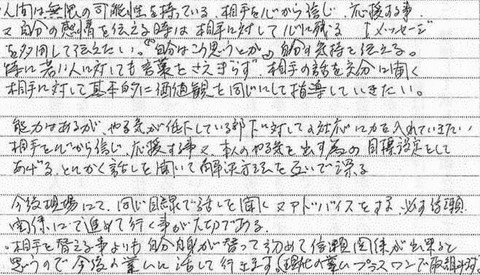 人間は無限の可能性を持っている、相手を心から信じ、応援する事
又自分の感情を伝える時は相手に対して心に残る Iメッセージ
を多用して伝えたい。"自分はこう思うとか"自分の気持を伝える。
特に若い人に対しても言葉をさえぎらず、相手の話を充分に聞く
相手に対して基本的に価値観を同じにして指導していきたい。
能力はあるが、やる気が低下している部下に対しての対応に力を入れていきたい
相手を心から信じ、応援する事、又、本人のやる気を出す為の目標設定をして
あげる、とにかく話しを聞いて解決方法を互いで探る
今後現場にて、同じ目線で話しを聞く又アドバイスをする、必ず信頼
関係にて進めて行く事が大切である。
・相手を替える事よりも自分自身が替って初めて信頼関係が出来ると
思うので今後の業ムに活して行きます。(現化の業ムプラスワンで取組